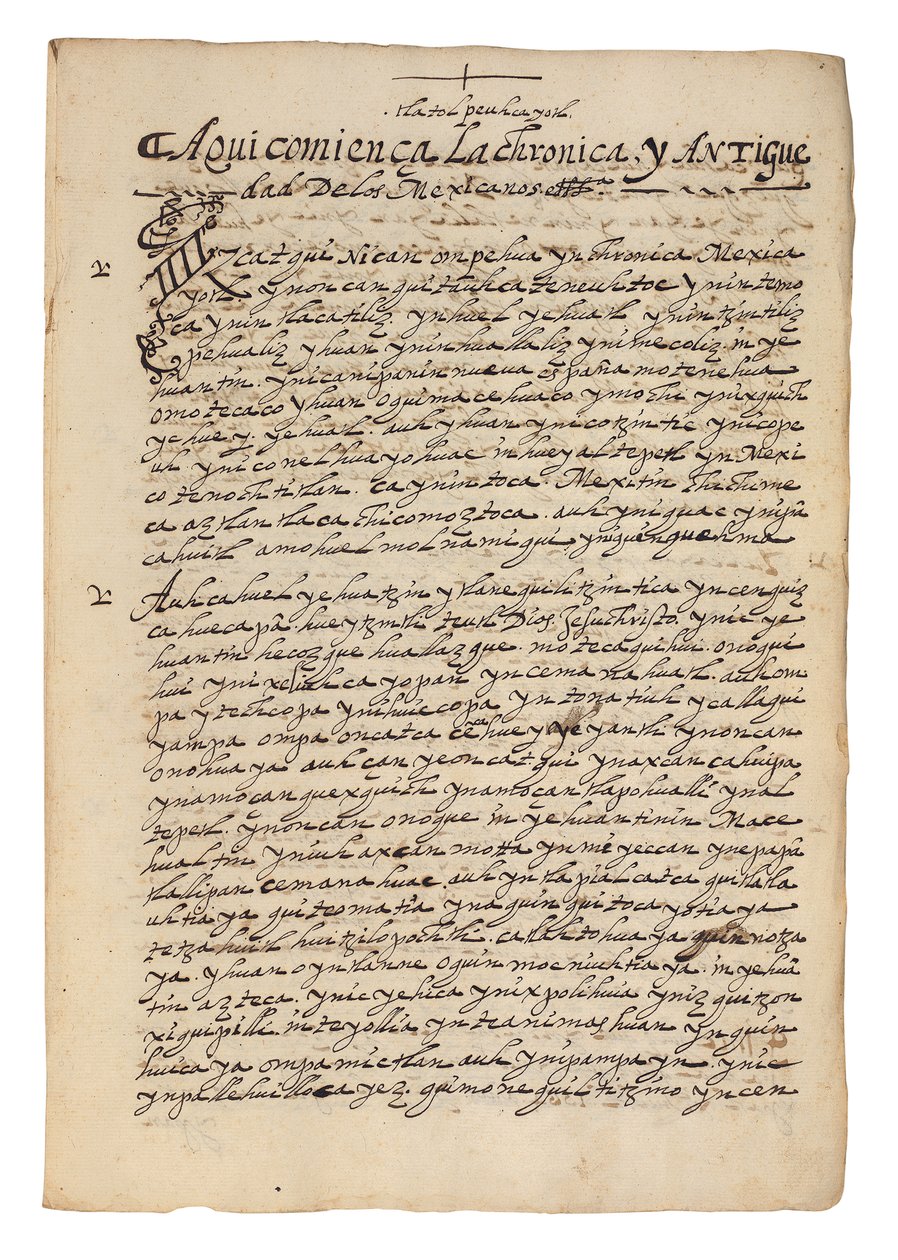 .tlatolpeuhcayotl.
¶ Aqui comiença La chronica, y ANTIGUE
dad De los Mexicanos. etta.
IZcatqui Nican ompehua yn chronica Mexica
yotl ynoncan quitauhcateneuhtoc ynintemo
ca ynin tlacatiliz. ynhuel yehuatl ynintzintiliz
pehualiz yhuan yninhuallaliz ynimecoliz. inye
huantin. ynicanipanin nueva españa motenehua
omotecaco yhuan oquimacehuaco ymochi ynixquich
ychuey. yehuatl. auh yhuan ynicotzintic ynicope
uh. yniconelhuayohuac inhueyaltepetl yn Mexi
co tenochtitlan. ca ynintoca. Mexitin chichime
ca aztlantlaca chicomoztoca. auh yniquac ynipā
cahuitl amohuel molnamiqui, ynquenquehma
Auh cahuel yehuatzin ytlanequilitzintica yncenquiz
ca huecapā. hueytzintli teutl Dios. Jesuchristo. ynic ye
huantin hecozque huallazque. motecaquihui. onoqui
hui ynixeliuhcayopan yncemanahuatl. auhom
pa ytechcopa ynihuiccopa yntonatiuh ycallaqui
yampa ompa oncatca cēca huey yeyantli ynoncan
onohuaya auh çan yeoncatqui ynaxcan cahuipa
ynamoçanquexquich ynamoçan tlapohualli ynal
tepetl. ynoncan onoque in yehuantinin Mace
hualtin yniuh axcan motta ynmieyeccan ynepapā
tlallipan cemanahuac. auh yntlapialcatca quitlatla
uhtiaya quiteomatia ynaquin quitocayotiaya
tetzahuitl huitzilopochtli. catlahtohuaya quinnotza
ya. yhuan oyntlanne oquinmocniuhtiaya. in yehuā
tin azteca. ynicyehica ynixpolihuia ynizquitzon
xiquipilli. inteyollia ynteanimashuan ynquin
huicaya ompa mictlan auh ynipampayn. ynic
ynpallehuilloca yez. quimonequiltitzino yncen